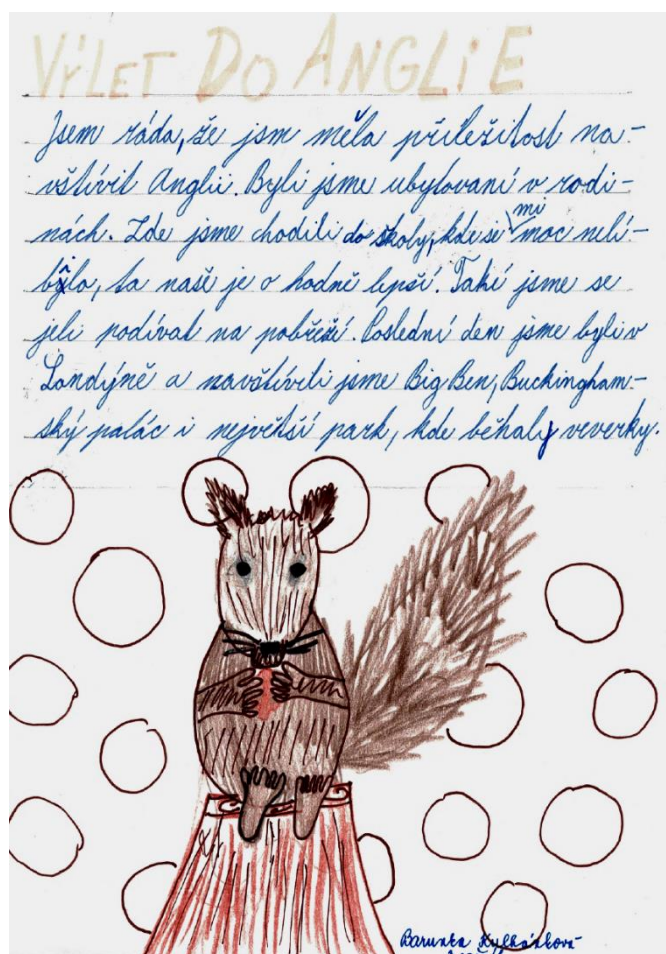 VÝLET DO ANGLiE
Jsem ráda, že jsm měla příležitost na-
vštívit Anglii. Byli jsme ubytovaní v rodi-
nách. Zde jsme chodili do školy, kde si mi moc nelí-
bilo, ta naše je o hodně lepší. Také jsme se
jeli podívat na pobřeží. Poslední den jsme byli v
Londýně a navštívili jsme Big Ben, Buckingham-
ský palác i největší park, kde běhaly veverky.
Barunka